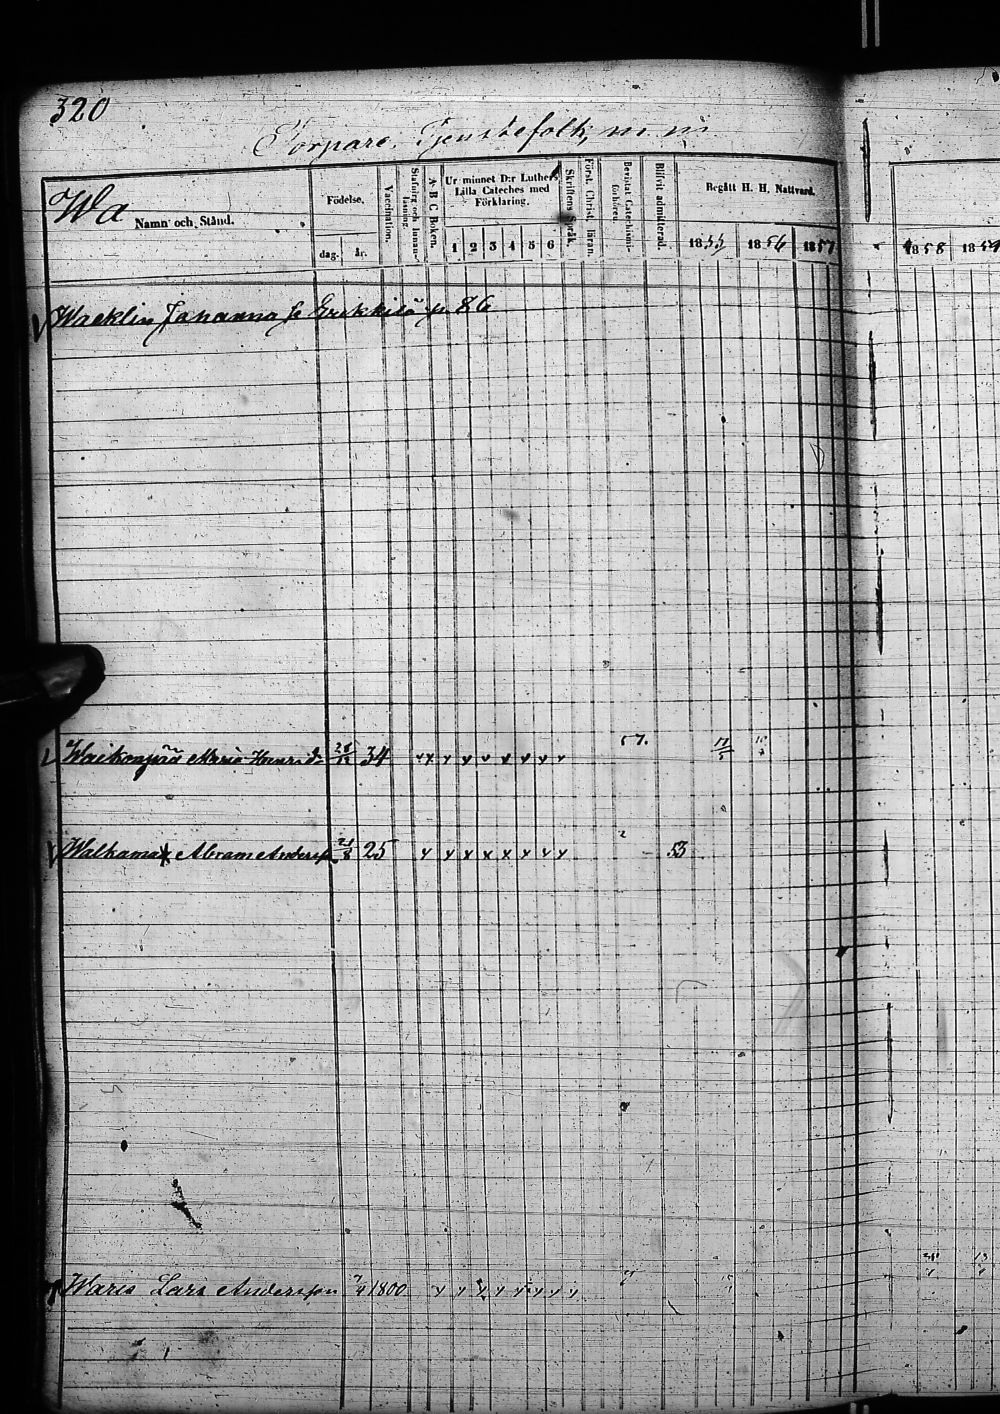 320
Torpare, Tjenstefolk, m. m.
Wa
Namn och Stånd.
Födelse.
dag. år.
Vaccination.
Stafning och Innanläsning.
A B C Boken.
Ur minnet D:r Luthers
Lilla Cateches med
Förklaring.
1 2 3 4 5 6
Skriftens Språk.
Först. Christ. läran.
Bevistat Catechismi-
förhören.
Blifvit admitterad.
Begått H. H. Nattvard.
1855 1856 1857
1858 1859
Wacklin Johanna se Erkkilä p. 86
Maria Henrics 34 57.
Walkama Abram Anderss. 25 53
Waris Lars Andersson 1800